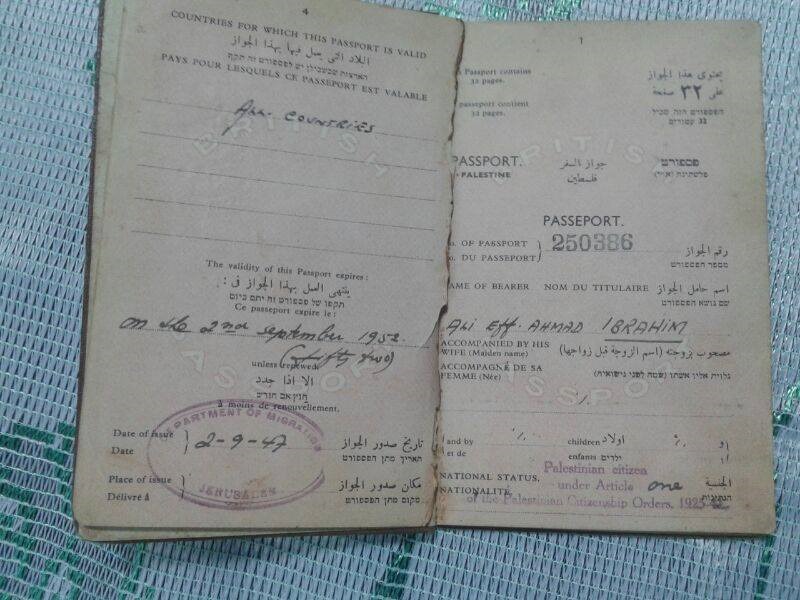 4
COUNTRIES FOR WHICH THIS PASSPORT IS VALID
البلاد التي يعمل فيها بهذا الجواز
הארצות שבשבילן יש לפספורט זה תקף
PAYS POUR LESQUELS CE PASSEPORT EST VALABLE
ALL COUNTRIES
BRITISH
The validity of this Passport expires:
ينتهي العمل بهذا الجواز في:
תקפו של פספורט זה יתם ביום
Ce passeport expire le:
on the 2nd september 1952.
(fifty two)
unless renewed.
الا اذا جدد
חוץ אם חודש
à moins de renouvellement.
PASSPORT
DEPARTMENT OF MIGRATION
JERUSALEM
Date of issue
Date
2-9-47
تاريخ صدور الجواز
תאריך מתן הפספורט
Place of issue
Délivré à
مكان صدور الجواز
מקום מתן הפספורט
1
Passport contains
32 pages.
passeport contient
32 pages.
يحتوي هذا الجواز
على ٣٢ صفحة
הפספורט הזה מכיל
32 עמודים
BRITISH
PASSPORT.
PALESTINE
جواز السفر
فلسطين
פספורט
פלשתינה (א״י)
PASSEPORT.
OF PASSPORT
DU PASSEPORT
250386
رقم الجواز
מספר הפספורט
NAME OF BEARER NOM DU TITULAIRE
اسم حامل الجواز
שם נושא הפספורט
ALI Eff. AHMAD IBRAHIM
ACCOMPANIED BY HIS
WIFE (Maiden name)
مصحوب بزوجته (اسم الزوجة قبل زواجها)
ACCOMPAGNÉ DE SA
FEMME (Née)
נלוית אליו אשתו (שמה לפני נישואיה)
PASSPORT
and by
et de
children اولاد
enfants ילדים
و
NATIONAL STATUS.
NATIONALITÉ
الجنسية
הנתינות
Palestinian citizen
under Article one
of the Palestinian Citizenship Orders, 1925-42